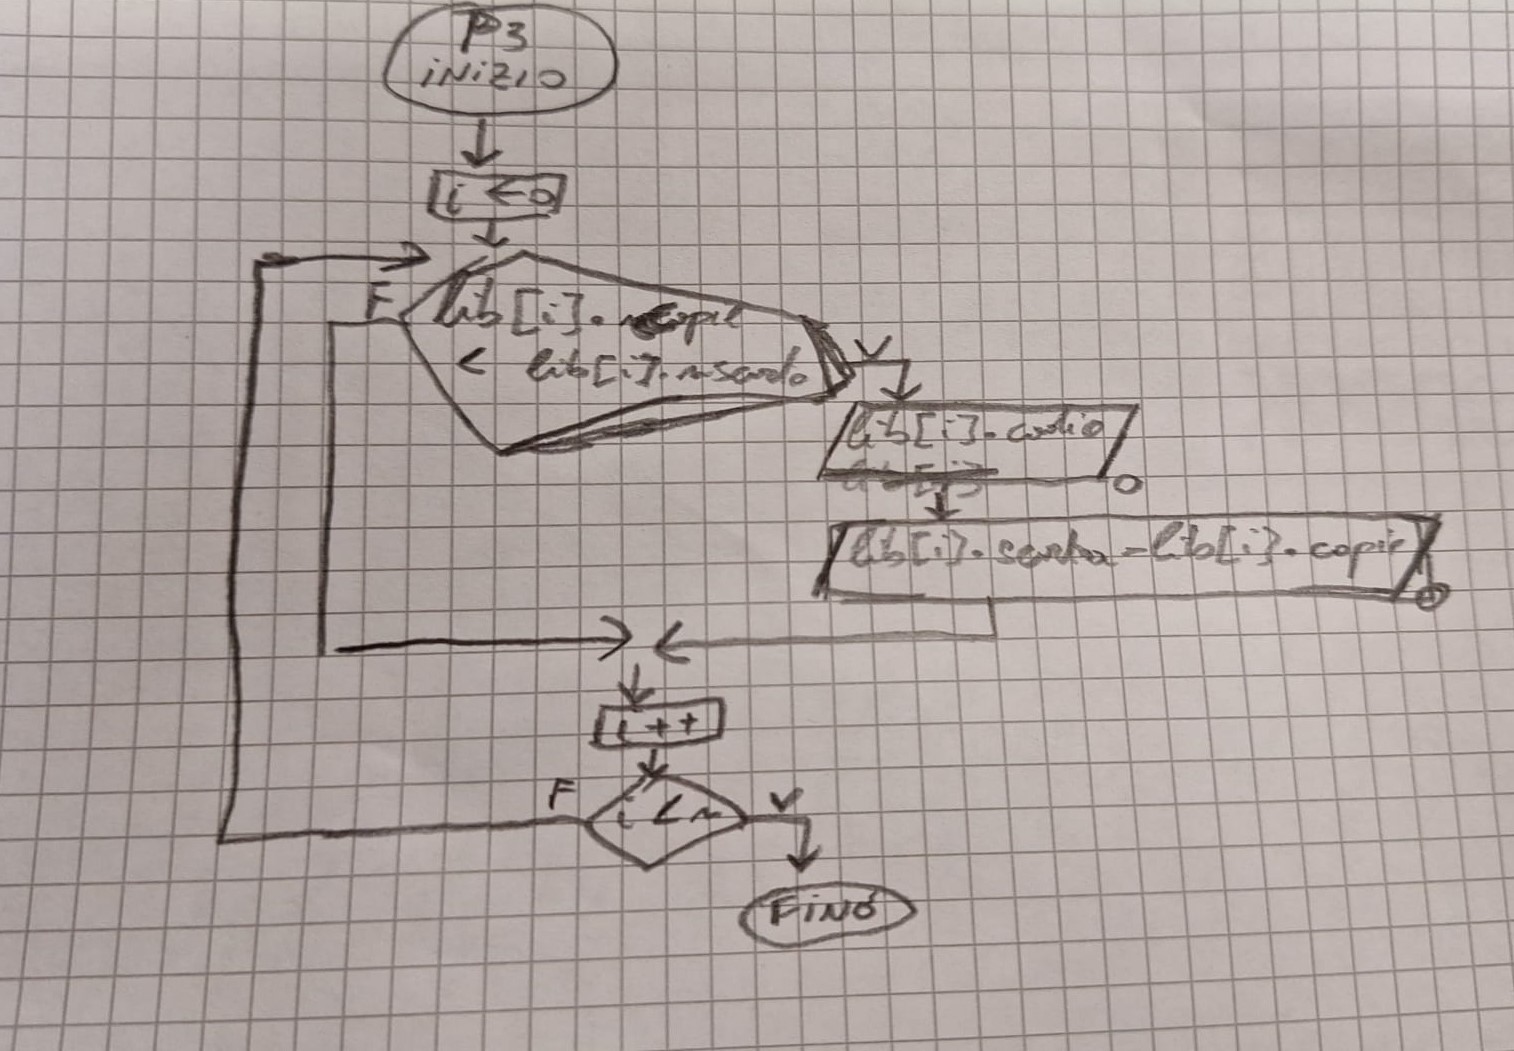 P3
INIZIO
i ← 0
F
lib[i]. copie
V
< lib[i].
lib[i]. codice
O
lib[i]. scorta - lib[i]. copie
O
i ++
F
i < n
V
FINE